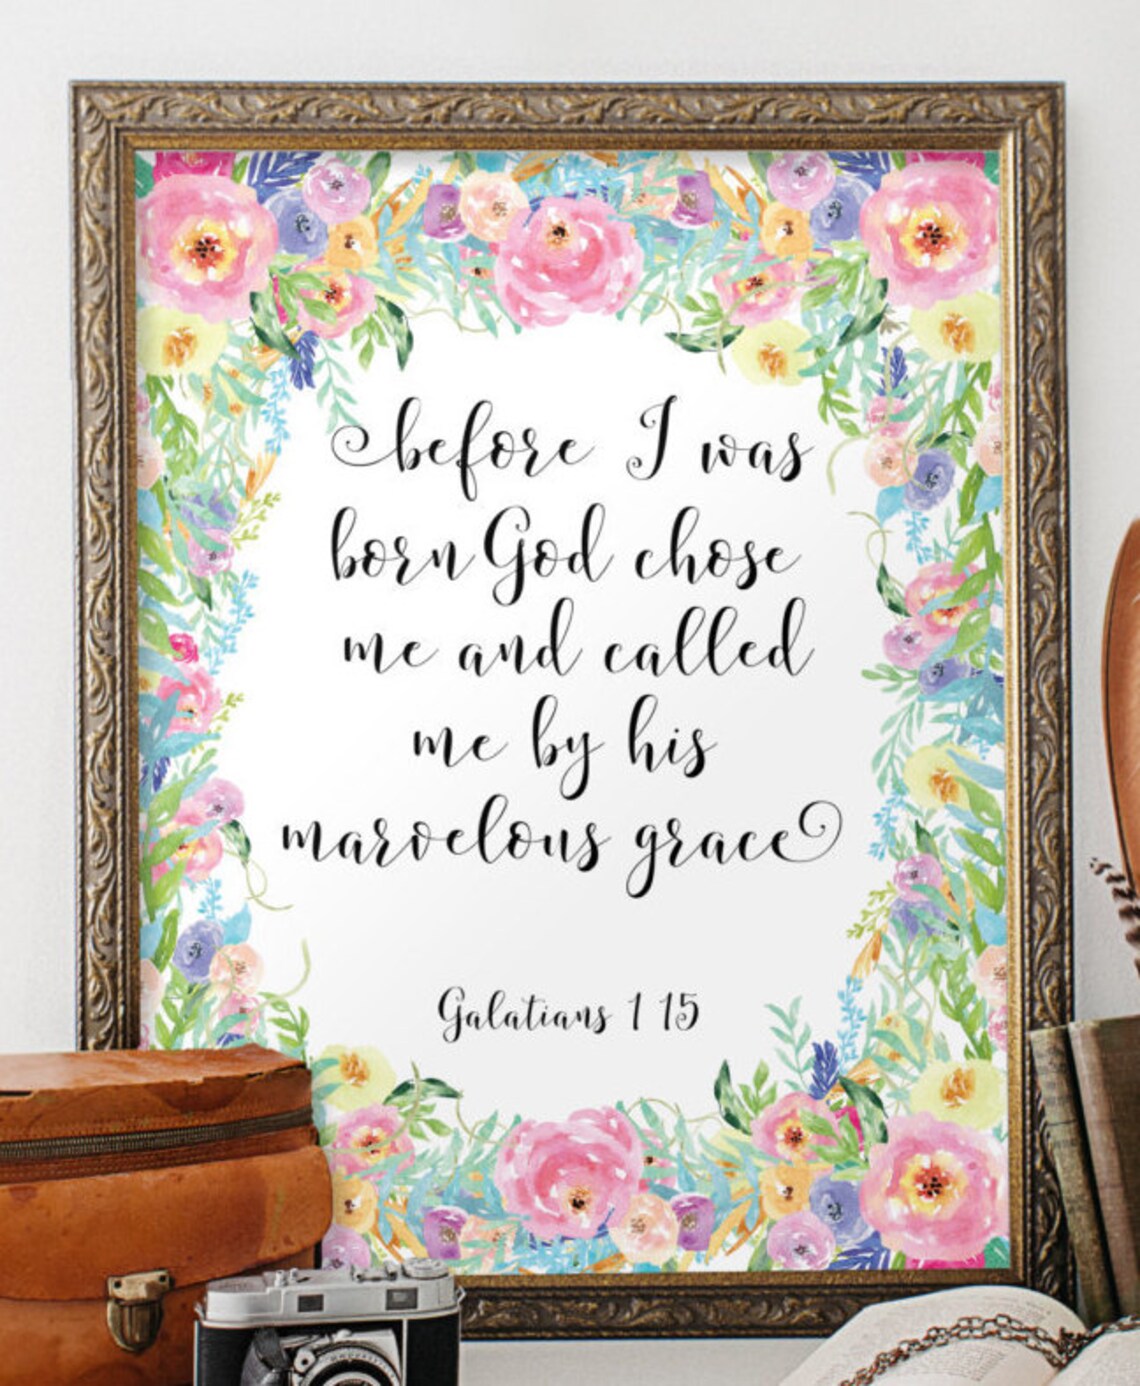 before I was
born God chose
me and called
me by his
marvelous grace
Galatians 1 15